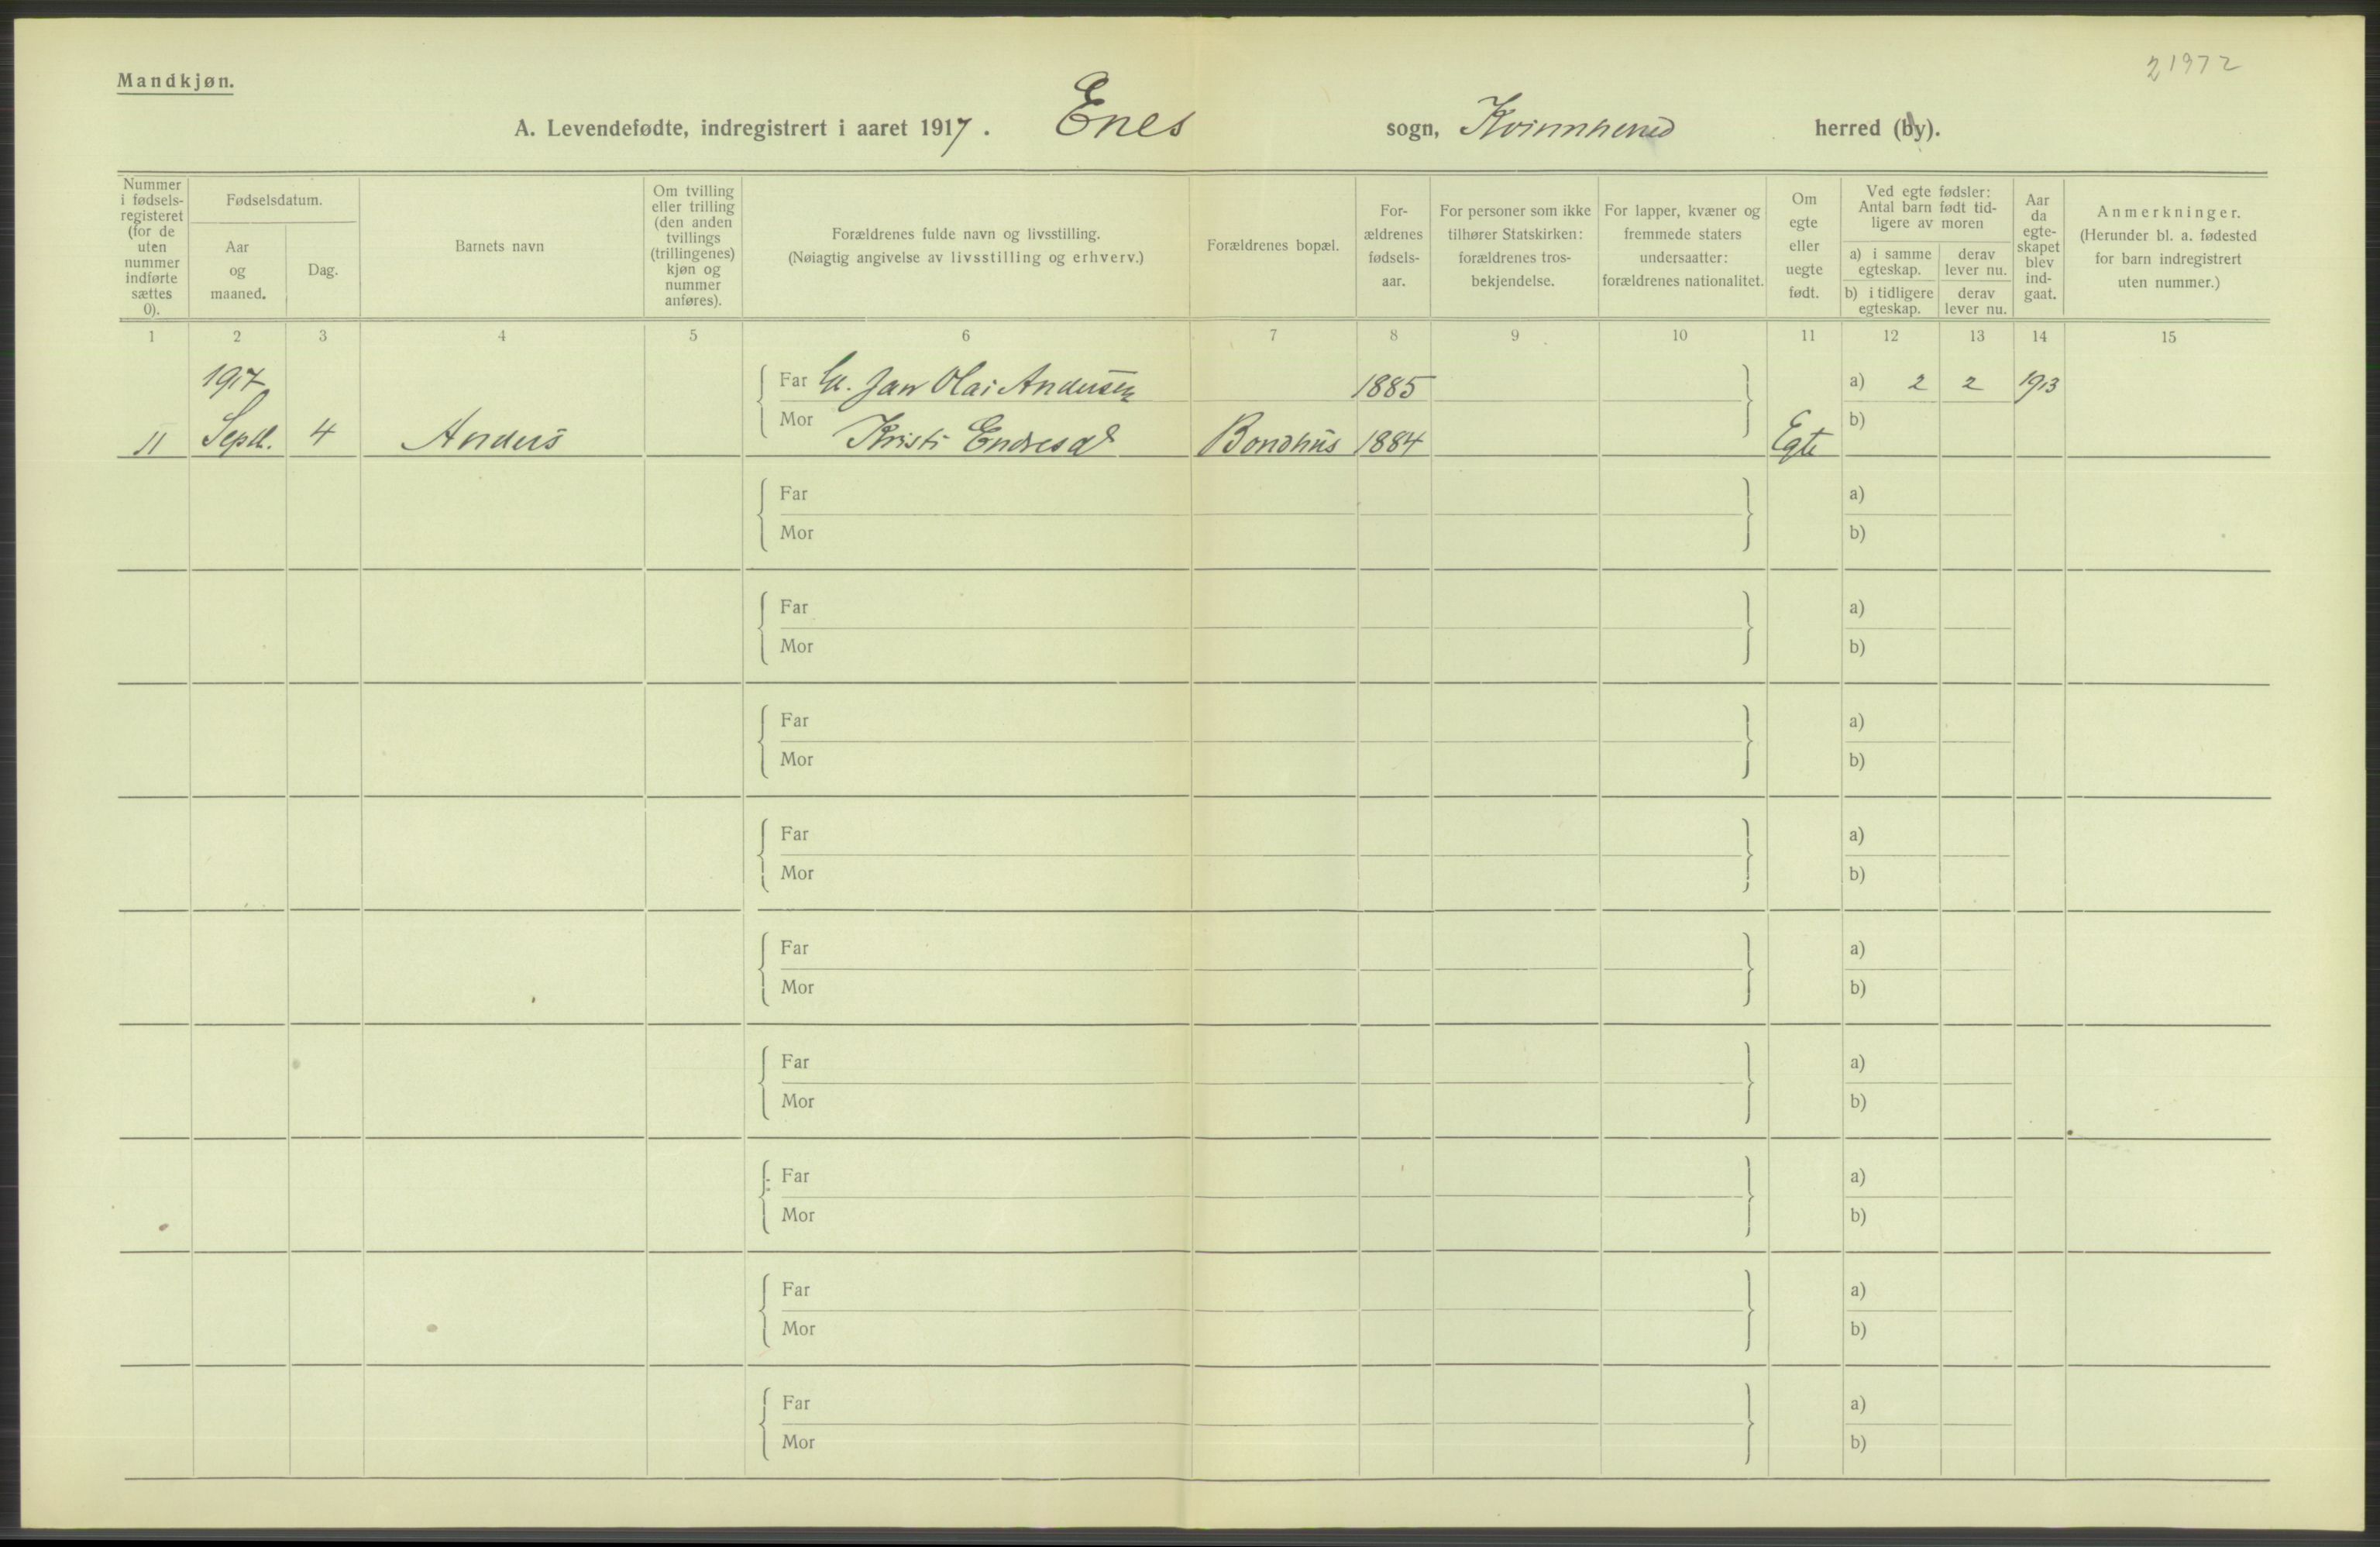 21972
Mandkjøn.
A. Levendefødte, indregistrert i aaret 1917. Enes sogn, Kvinnherred herred (by).
Nummer i fødsels-registeret (for de uten nummer indførte sættes 0).
Fødselsdatum.
Aar og maaned.
Dag.
Barnets navn
Om tvilling eller trilling (den anden tvillings (trillingenes) kjøn og nummer anføres).
Forældrenes fulde navn og livsstilling.
(Nøiagtig angivelse av livsstilling og erhverv.)
Forældrenes bopæl.
For-ældrenes fødsels-aar.
For personer som ikke tilhører Statskirken: forældrenes tros-bekjendelse.
For lapper, kvæner og fremmede staters undersaatter: forældrenes nationalitet.
Om egte eller uegte født.
Ved egte fødsler: Antal barn født tid-ligere av moren
a) i samme egteskap.
derav lever nu.
b) i tidligere egteskap.
derav lever nu.
Aar da egte-skapet blev ind-gaat.
Anmerkninger.
(Herunder bl. a. fødested for barn indregistrert uten nummer.)
1 2 3 4 5 6 7 8 9 10 11 12 13 14 15
1917 Far Jan Olai Andersen 1885 a) 2 2 1913
11 Septl. 4 Anders Mor Kristi Endresd Bondhus 1884 Egte b)
Far a)
Mor b)
Far a)
Mor b)
Far a)
Mor b)
Far a)
Mor b)
Far a)
Mor b)
Far a)
Mor b)
Far a)
Mor b)
Far a)
Mor b)
Far a)
Mor b)